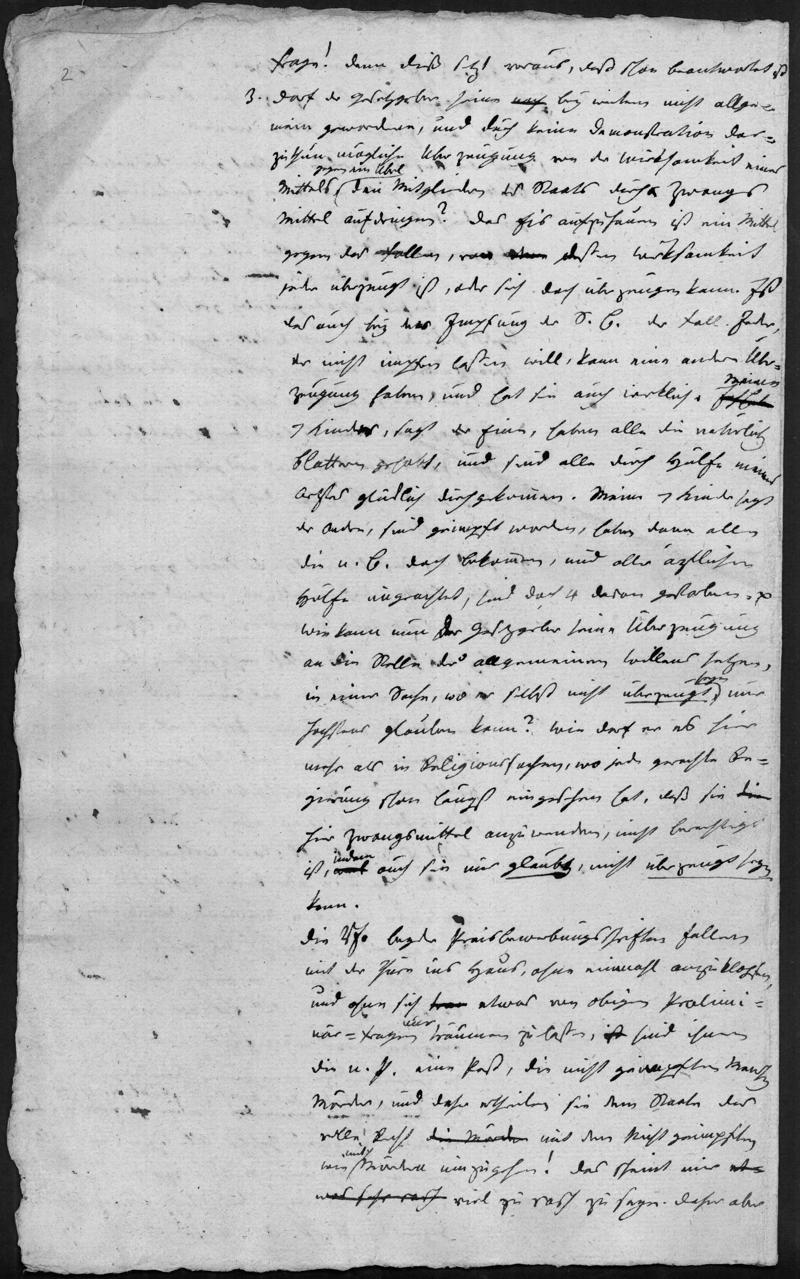 2
frage! denn dieß setzt voraus, daß schon beantwortet ist
3. darf der Gesetzgeber seine noch bey weitem nicht allge=
mein gewordene, und durch keine Demonstration dar=
zuthun mögliche Überzeugung von der Wirksamkeit eines
gegen ein Übel
Mittels den Mitgliedern des Staats durch Zwangs
Mittel aufdringen? das Eis aufzuhauen ist ein Mittel
gegen das fallen, von dessen Wirksamkeit
jeder überzeugt ist, oder sich doch überzeugen kann. Ist
das auch bey der Impfung der S. B. der Fall. Jeder,
der nicht impfen lassen will, kann eine andere Über=
zeugung haben, und hat sie auch wirklich. Meine
7 Kinder, sagt der eine, haben alle die natürlich
Blattern gehabt, und sind alle durch Hülfe meines
Arztes glücklich durchgekommen. Meine 7 Kinder sagt
der andere, sind geimpft worden, haben dann alle
die n. B. doch bekommen, und aller ärztlichen
Hülfe ungeachtet, sind doch 4 davon gestorben. x
Wie kann nun der Gesetzgeber seine Überzeugung
an die Stelle des allgemeinen Willens setzen,
in einer Sache, wo er selbst nicht überzeugt seyn, nur
höchstens glauben kann? wie darf er es hier
mehr als in Religionssachen, wo jede gerechte Re=
gierung schon längst eingesehen hat, daß sie
hier Zwangsmittel anzuwenden, nicht berechtigt
ist, indem auch sie nur glaubt, nicht überzeugt seyn
kann.
Die Vf. beyder Preisbewerbungsschriften fallen
mit der Thüre ins Haus, ohne einmahl anzuklopfen,
und ohne sich etwas von obigen Prälimi=
när=fragen nur träumen zu lassen, sind ihnen
die n. P. eine Pest, die nicht geimpften Menschen
Mörder, und daher ertheilen sie dem Staate das
volle Recht die Mörder mit den Nicht geimpften
wie mit Mördern umzugehen! das scheint mir et=
was sehr rasch viel zu rasch zu seyn. daher aber